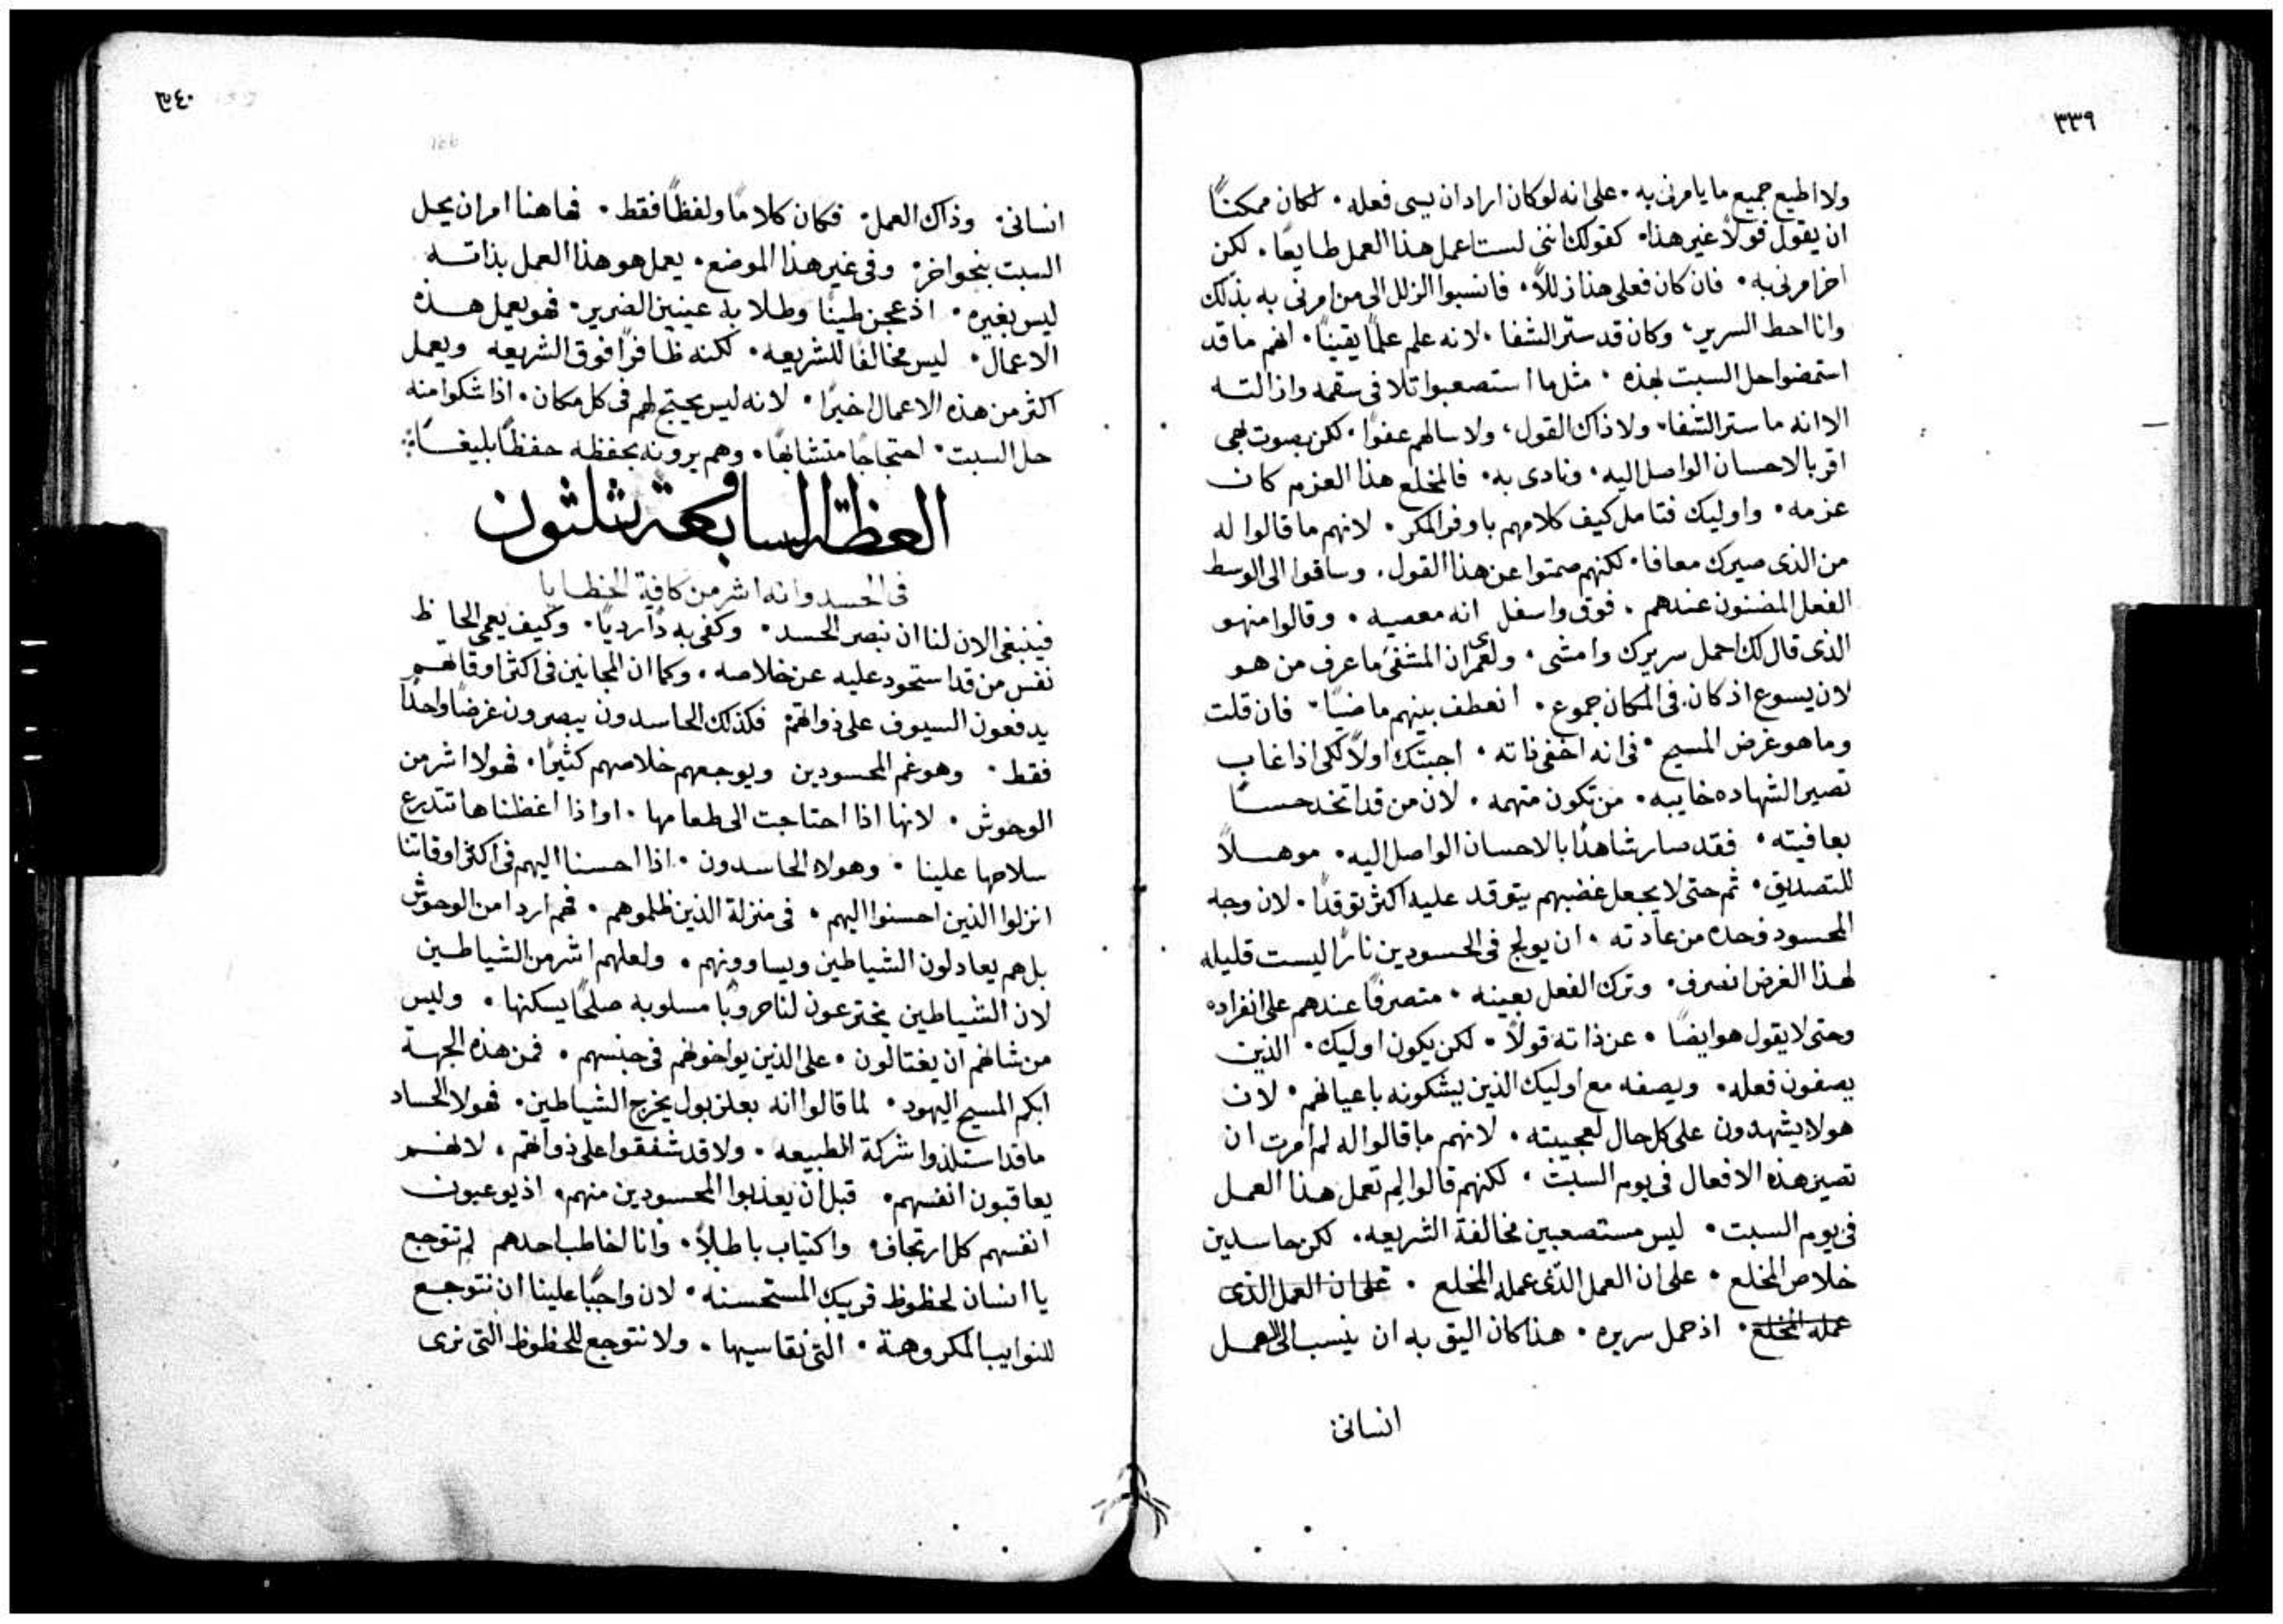 ٣٣٩
ولا اطيع جميع ما يامرنى به · على انه لو كان اراد ان يسى فعله · لكان ممكنًا
ان يقول قولًا غير هذا · كقولك اننى لست اعمل هذا العمل طايعًا · لكن
اخر امرنى به · فان كان فعلى هذا زللًا · فانسبوا الزلل الى من امرنى به بذلك
وانا احط السرير · وكان قد ستر الشفا · لانه علم علمًا يقينًا · انهم ما قد
استمضوا حل السبت لهذه · مثل ما استصعبوا تلافى سقمه وازالته
الا انه ما ستر الشفا · ولا ذاك القول · ولا سالهم عفوًا · لكن بصوت بهى
اقر بالاحسان الواصل اليه · ونادى به · فالمخلع هذا العزم كان
عزمه · واوليك فتامل كيف كلامهم باوفر المكر · لانهم ما قالوا له
من الذى صيرك معافا · لكنهم صمتوا عن هذا القول · وساقوا الى الوسط
الفعل المضنون عندهم · فوق واسفل انه معصيه · وقالوا من هو
الذى قال لك احمل سريرك وامشى · ولعمرى ان المشفى ما عرف من هو
لان يسوع اذ كان فى المكان جموع · انعطف بينهم ماضيًا · فان قلت
وما هو غرض المسيح · فى انه اخفى ذاته · اجبتك اولًا لكى اذا غاب
تصير الشهاده خايبه · من تكون متهمه · لان من قد اتخد حسًا
بعافيته · فقد صار شاهدًا بالاحسان الواصل اليه · موهلًا
للتصديق · ثم حتى لا يجعل غضبهم يتوقد عليه اكثر توقدًا · لان وجه
المحسود وحده من عادته · ان يولج فى الحسودين نارًا ليست قليله
لهذا الغرض انصرف · وترك الفعل بعينه · متصرفًا عندهم على انفراده
وحتى لا يقول هو ايضًا · عن ذاته قولًا · لكن يكون اوليك · الذين
يصفون فعله · ويصفه مع اوليك الذين يشكونه باعيانهم · لان
هولاء يشهدون على كل حال لعجيبته · لانهم ما قالوا له لم امرت ان
تصير هذه الافعال فى يوم السبت · لكنهم قالوا لم تعمل هذا العمل
فى يوم السبت · ليس مستصعبين مخالفة الشريعه · لكن حاسدين
خلاص المخلع · على ان العمل الذى عمله المخلع · على ان العمل الذى
عمله المخلع · اذ حمل سريره · هذا كان اليق به ان ينسب الى العمل
انسانى
٣٤٠
انسانى · وذاك العمل · فكان كلامًا ولفظًا فقط · فهاهنا امر ان يحل
السبت بنحو اخر · وفى غير هذا الموضع · يعمل هو هذا العمل بذاته
ليس بغيره · اذ عجن طينًا وطلا به عينين الضرير · فهو يعمل هذه
الاعمال · ليس مخالفًا للشريعه · لكنه ظافرًا فوق الشريعه ويعمل
اكثر من هذه الاعمال اخيرًا · لانه ليس يحتج لهم فى كل مكان · اذا شكوا منه
حل السبت · احتجاجًا متشابهًا · وهم يرونه يحفظه حفظًا بليغًا
العظة السابعة وثلثون
فى الحسد وانه اشر من كافة الخطايا
فينبغى الان لنا ان نبصر الحسد · وكفى به دًا رديًا · وكيف يعمى الحاظ
نفس من قد استحود عليه عن خلاصه · وكما ان المجانين فى اكثر اوقاتهم
يدفعون السيوف على ذواتهم · فكذلك الحاسدون يبصرون غرضًا واحدًا
فقط · وهو غم المحسودين ويوجعهم خلاصهم كثيرًا · فهولا اشر من
الوحوش · لانها اذا احتاجت الى طعامها · او اذا اغظناها تتدرع
سلاحها علينا · وهولاء الحاسدون · اذا احسنا اليهم فى اكثر اوقاتنا
انزلوا الذين احسنوا اليهم · فى منزلة الذين ظلموهم · فهم اردا من الوحوش
بل هم يعادلون الشياطين ويساوونهم · ولعلهم اشر من الشياطين
لان الشياطين يخترعون لنا حروبًا مسلوبه صلحًا يسكنها · وليس
من شانهم ان يغتالون · على الذين يواخوهم فى جنسهم · فمن هذه الجهة
ابكم المسيح اليهود · لما قالوا انه بعلزبول يخرج الشياطين · فهولا الحساد
ما قد استلذوا شركة الطبيعه · ولا قد شفقوا على ذواتهم · لانهم
يعاقبون انفسهم · قبل ان يعذبوا المحسودين منهم · اذ يوعبون
انفسهم كل ارتجاف · واكتياب باطلًا · وانا اخاطب احدهم لم تتوجع
يا انسان لحظوظ قريبك المستحسنه · لان واجبًا علينا ان نتوجع
للنوايب المكروهة · التى نقاسيها · ولا نتوجع للحظوظ التى نرى